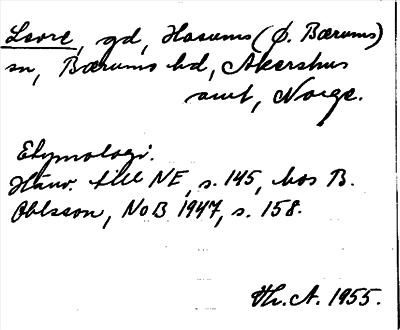 Isore, gd, Hasums (Ø. Bærums)
sn, Bærums hd, Akershus
amt, Norge.
Etymologi.
Hänv. till NE, s. 145, hos B.
Ohlsson, NoB 1947, s. 158.
Th. A. 1955.